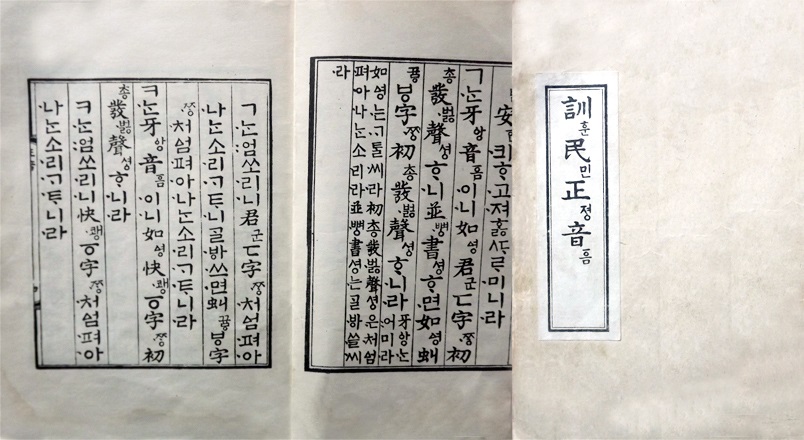 訓훈民민正정音ᅙᅳᆷ
安ᅙᅡᆫ킈ᄒᆞ고져홇ᄯᆞᄅᆞ미니라
ㄱᄂᆞᆫ牙앙音ᅙᅳᆷ이니如ᅀᅧᆼ君군ㄷ字ᄍᆞᆼ初
총發벓聲셩ᄒᆞ니並뼝書셩ᄒᆞ면如ᅀᅧᆼ虯
뀨ᇢㅸ字ᄍᆞᆼ初총發벓聲셩ᄒᆞ니라牙앙ᄂᆞᆫ어미라
如ᅀᅧᆼ는ᄀᆞᄐᆞᆯ씨라初총發벓聲셩은처ᅀᅥᆷ
펴아나ᄂᆞᆫ소리라並뼝書셩는ᄀᆞᆯᄫᅡ쓸씨
라
ㄱᄂᆞᆫ엄쏘리니君군ㄷ字ᄍᆞᆼ처ᅀᅥᆷ펴아
나ᄂᆞᆫ소리ᄀᆞᄐᆞ니ᄀᆞᆯᄫᅡ쓰면虯뀨ᇢㅸ字
ᄍᆞᆼ처ᅀᅥᆷ펴아나ᄂᆞᆫ소리ᄀᆞᄐᆞ니라
ㅋᄂᆞᆫ牙앙音ᅙᅳᆷ이니如ᅀᅧᆼ快쾡ㆆ字ᄍᆞᆼ初
총發벓聲셩ᄒᆞ니라
ㅋᄂᆞᆫ엄쏘리니快쾡ㆆ字ᄍᆞᆼ처ᅀᅥᆷ펴아
나ᄂᆞᆫ소리ᄀᆞᄐᆞ니라